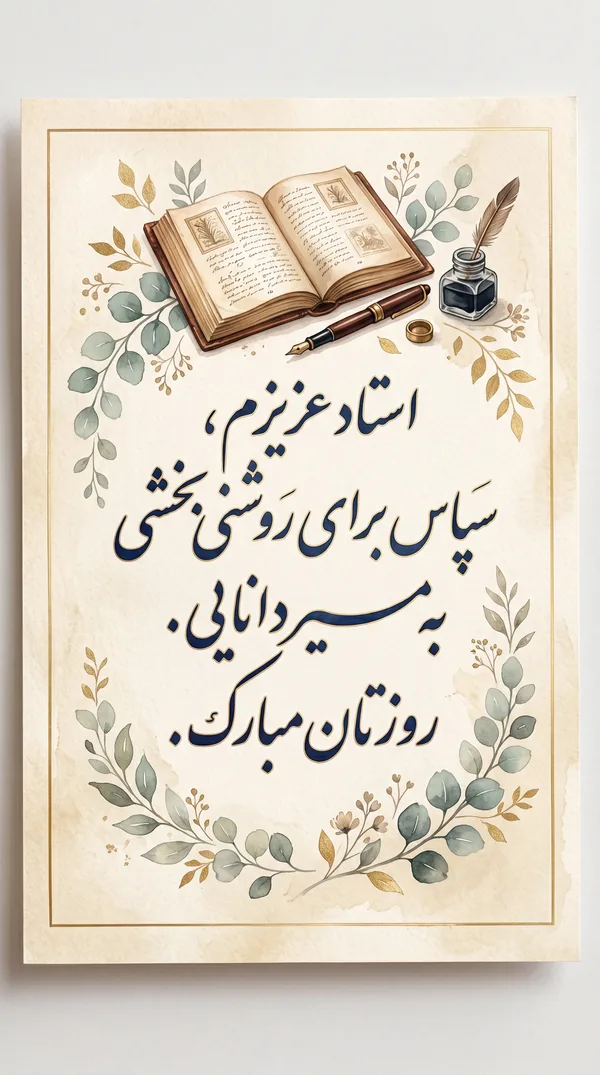 استاد عزیزم،
سَپاس برای رَوشنی‌بخشی
به مسیر دانایی.
روزتان مبارک.